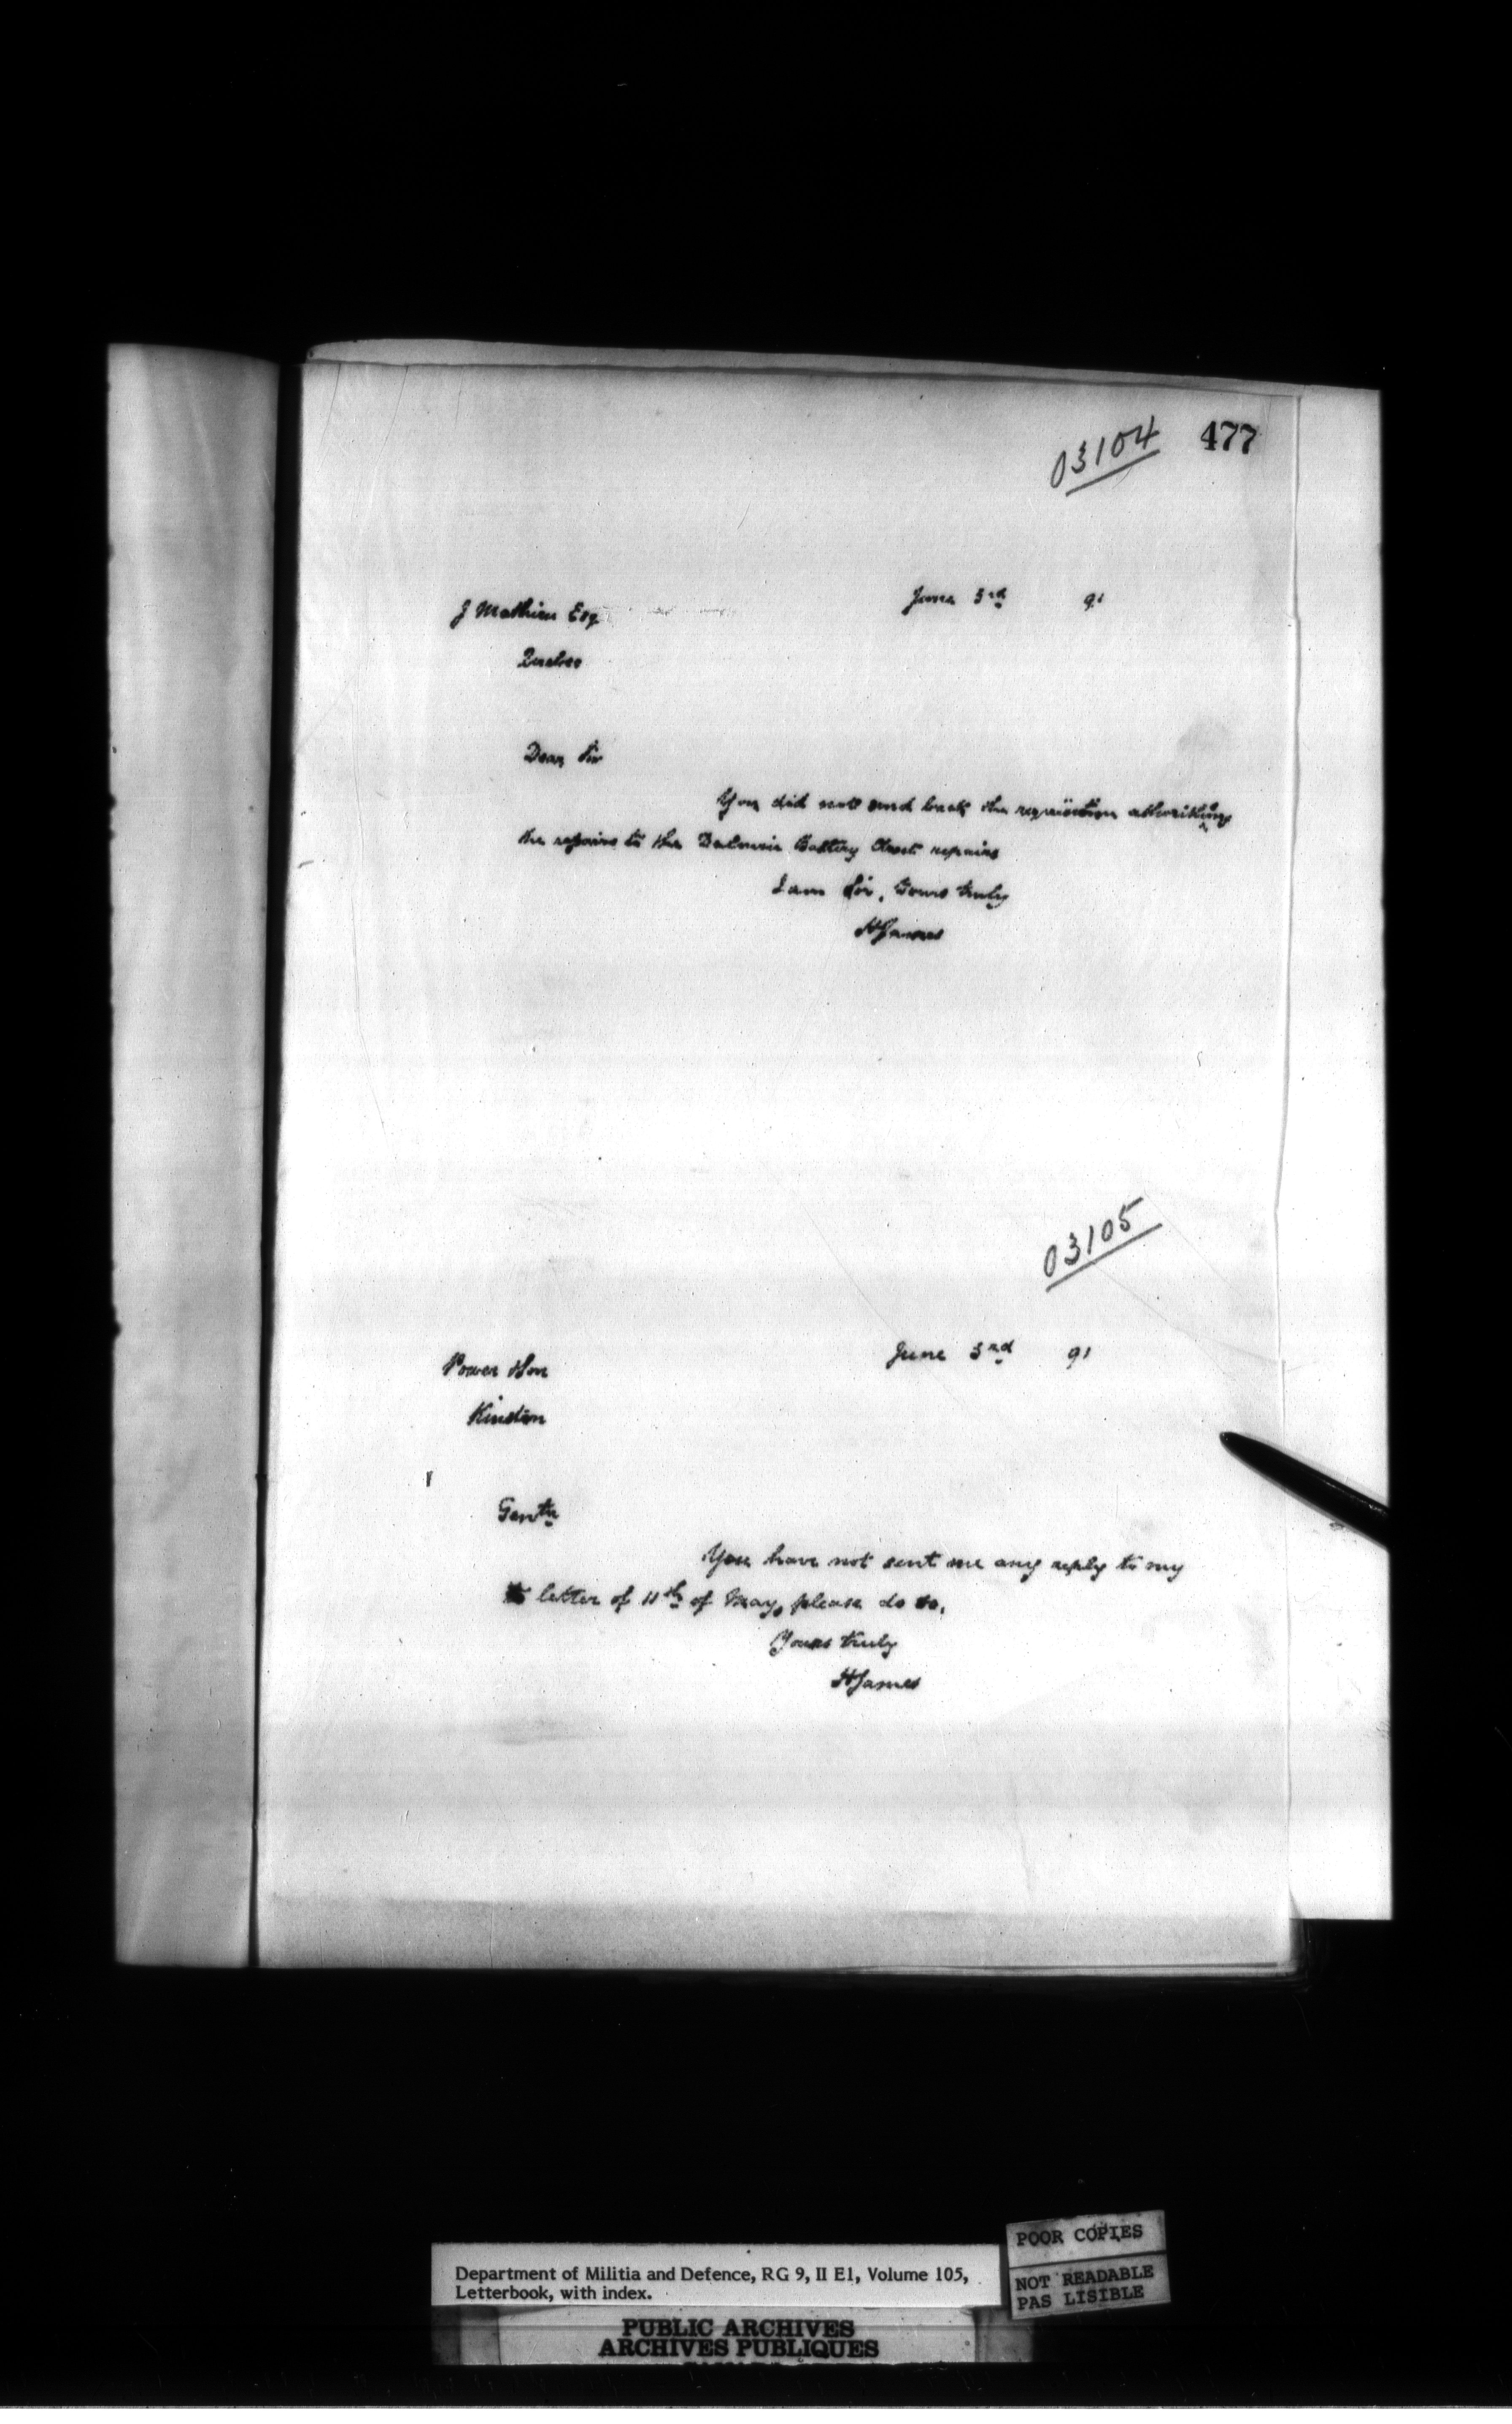 03104 477
June 3rd 91
J Mathieu Esq
Quebec
Dear Sir
You did not send back the requisition
the repairs to the Battery Closet repairs
I am Sir, Yours truly
HJames
03105
June 3rd 91
Power & Son
Kinston
Gentn
You have not sent me any reply to my
letter of 11th of May, please do so.
Yours truly
HJames
POOR COPIES
NOT READABLE
PAS LISIBLE
Department of Militia and Defence, RG 9, II E1, Volume 105,
Letterbook, with index.
PUBLIC ARCHIVES
ARCHIVES PUBLIQUES